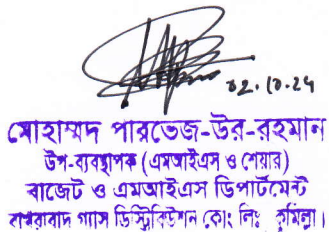 ০২.১০.২৪
মোহাম্মদ পারভেজ-উর-রহমান
উপ-ব্যবস্থাপক (এমআইএস ও শেয়ার)
বাজেট ও এমআইএস ডিপার্টমেন্ট
বাখরাবাদ গ্যাস ডিস্ট্রিবিউশন কোং লিঃ কুমিল্লা।